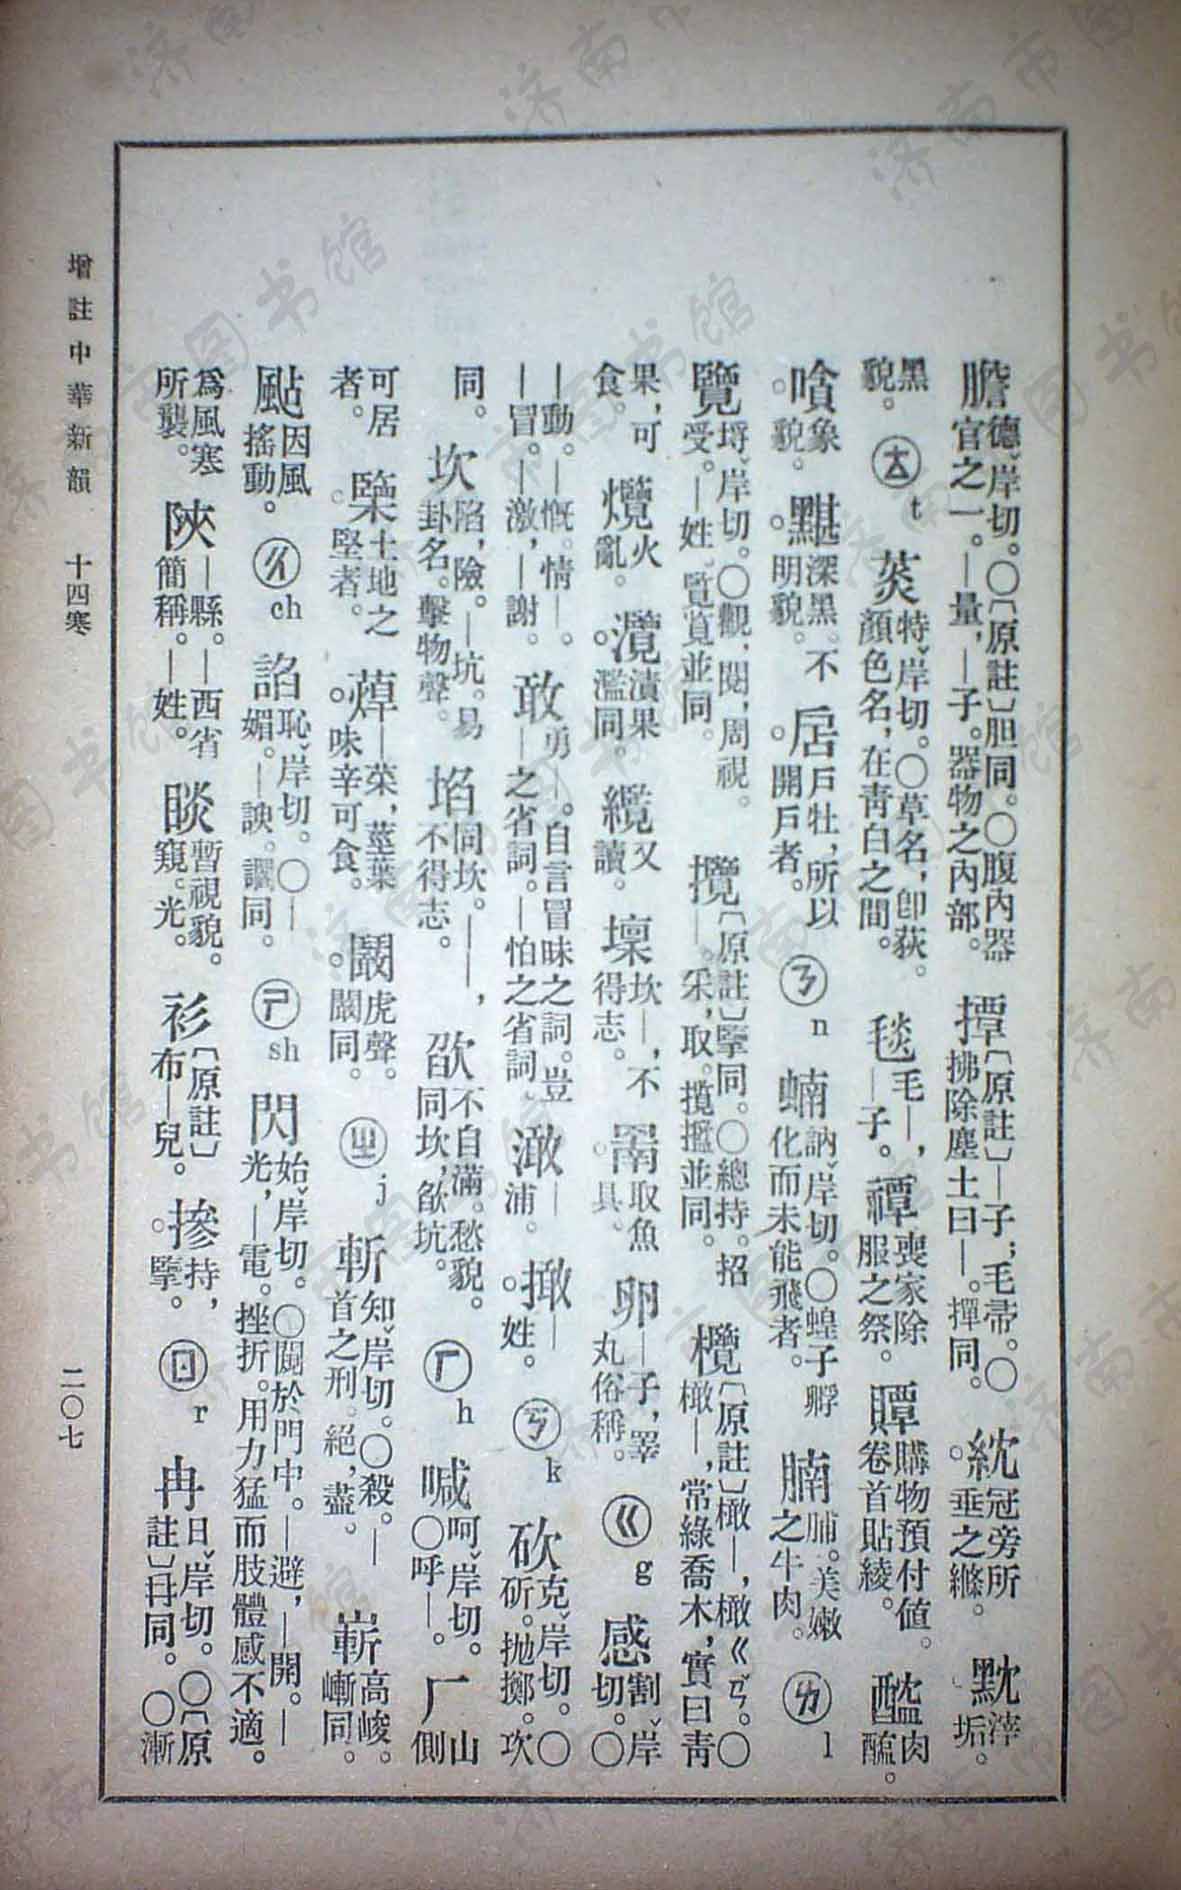 膽德岸切。〇〔原註〕胆同。〇腹內器官之一。—量,—子。器物之內部。 撢〔原註〕—子;毛帚。〇拂除塵土曰—。撣同。 紞冠旁所垂之縧。 黕滓垢。
黑貌。 ㊀ㄊ t 菼特岸切。〇草名,卽荻。顏色名,在靑白之間。 毯毛—,—子。 禫喪家除服之祭。 贉購物預付値。卷首貼綾。 醓肉醢。
嗿象貌。 黮深黑。不明貌。 扂戶牡,所以開戶者。 ㄋ n 蝻訥岸切。〇蝗子孵化而未能飛者。 腩脯。美嫩之牛肉。 ㄌ l
覽埒岸切。〇觀,閱,周視。受。—姓。覧覔並同。 攬〔原註〕擥同。〇總持。招—。采,取。擥㩜並同。 欖〔原註〕橄—,橄ㄍㄢ。〇橄—,常綠喬木,實曰靑
果,可食。 爦火亂。 灠漬果。濫同。 纜又讀。 壈坎—,不得志。 罱取魚具。 卵—子,睪丸俗稱。 ㄍ g 感割岸切。〇
—動。—慨。情—。—冒。—激,—謝。 敢勇—。自言冒昧之詞。豈—之省詞。—怕之省詞。 澉—浦。 橄—姓。 ㄎ k 砍克岸切。〇斫。拋擲。坎
同。 坎陷,險。—坑。易卦名。擊物聲。 埳同坎。——,不得志。 欿不自滿。愁貌。同坎,欿坑。 ㄏ h 喊呵岸切。〇呼—。 厂山側
可居者。 壏土地之堅者。 蔊—菜,莖葉味辛可食。 㘚虎聲。闞同。 ㄓ j 斬知岸切。〇殺。—首之刑。絕,盡。 嶄高峻。嶃同。
颭因風搖動。 ㄔ ch 諂恥岸切。〇—媚。—諛。讇同。 ㄕ sh 閃始岸切。〇闚於門中。—避,—開。—光,—電。挫折。用力猛而肢體感不適。
爲風寒所襲。 陝—縣。—西省簡稱。—姓。 睒暫視貌。窺。光。 衫〔原註〕布—兒。 摻持,擥。 ㄖ r 冉日岸切。〇〔原註〕冄同。〇漸
增註中華新韻 十四寒 二〇七